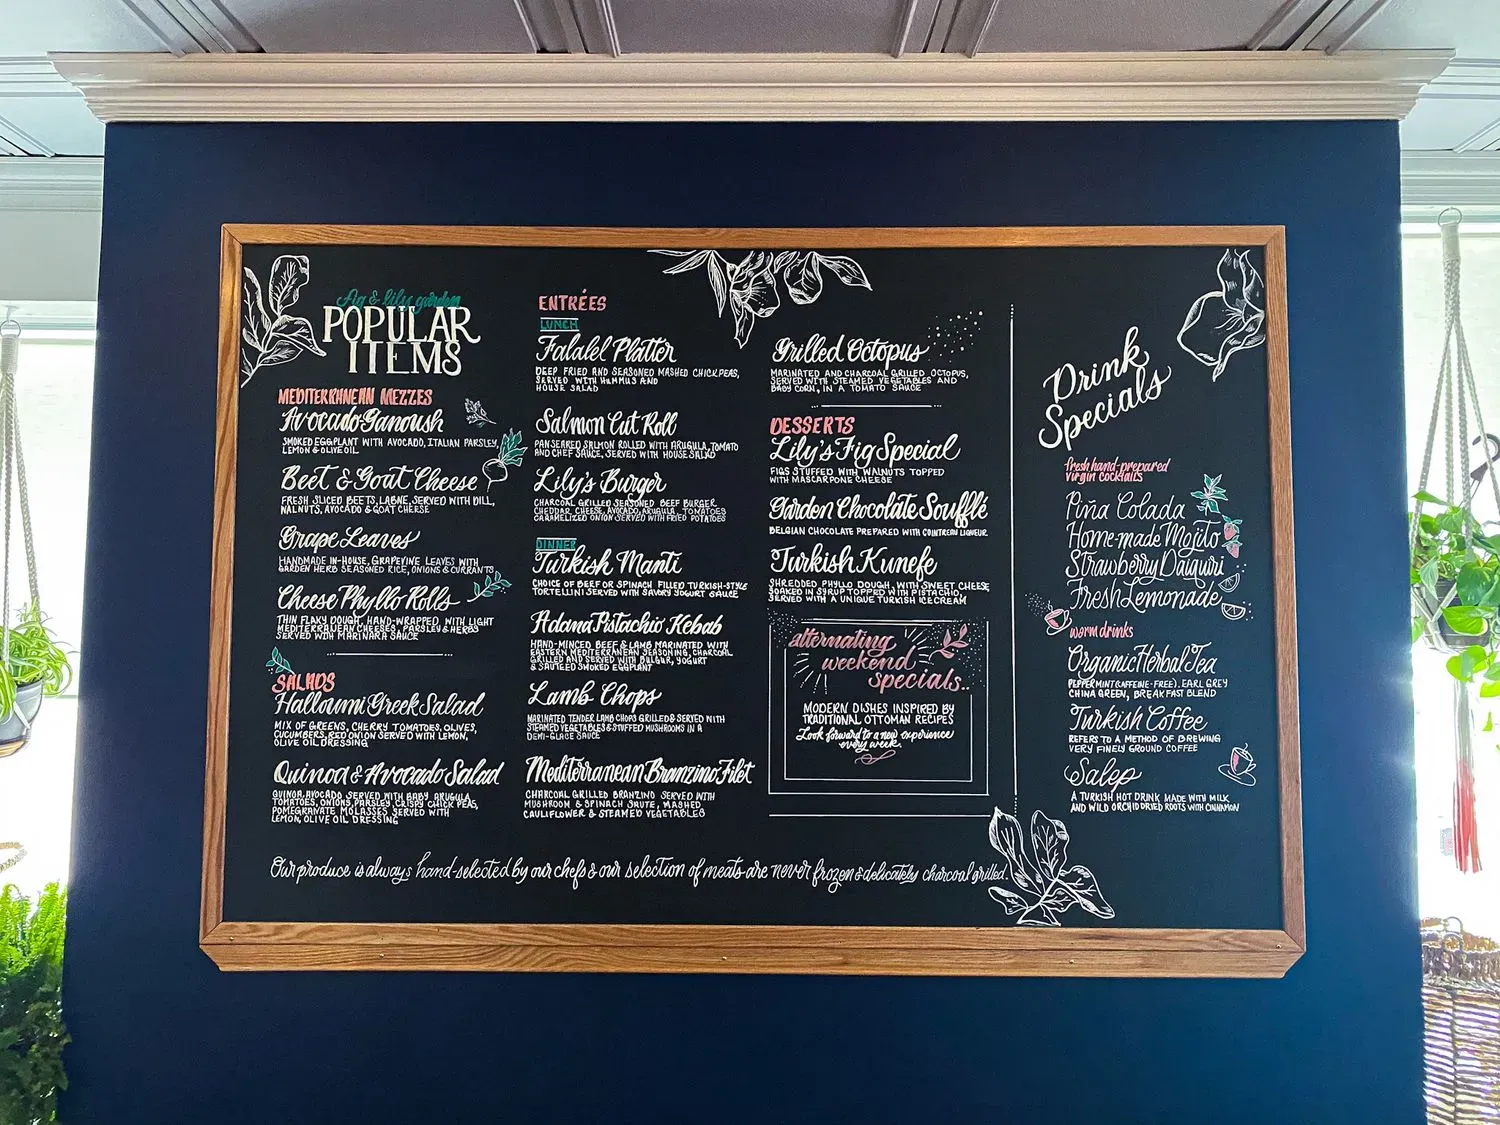 Fig & lily garden
POPULAR
ITEMS
MEDITERRANEAN MEZZES
Avocado Ganoush
SMOKED EGGPLANT WITH AVOCADO, ITALIAN PARSLEY,
LEMON & OLIVE OIL
Beet & Goat Cheese
FRESH SLICED BEETS, LABNE, SERVED WITH DILL,
WALNUTS, AVOCADO & GOAT CHEESE
Grape Leaves
HANDMADE IN-HOUSE, GRAPEVINE LEAVES WITH
GARDEN HERB SEASONED RICE, ONIONS & CURRANTS
Cheese Phyllo Rolls
THIN FLAKY DOUGH, HAND-WRAPPED, WITH LIGHT
MEDITERRANEAN CHEESES, PARSLEY & HERBS
SERVED WITH MARINARA SAUCE
SALADS
Halloumi Greek Salad
MIX OF GREENS, CHERRY TOMATOES, OLIVES,
CUCUMBERS, RED ONION SERVED WITH LEMON,
OLIVE OIL DRESSING
Quinoa & Avocado Salad
QUINOA, AVOCADO SERVED WITH BABY ARUGULA,
TOMATOES, ONIONS, PARSLEY, CRISPY CHICK PEAS,
POMEGRANATE MOLASSES SERVED WITH
LEMON, OLIVE OIL DRESSING
ENTRÉES
LUNCH
Falalel Platter
DEEP FRIED AND SEASONED MASHED CHICKPEAS,
SERVED WITH HUMMUS AND
HOUSE SALAD
Salmon Cut Roll
PAN SEARED SALMON ROLLED WITH ARUGULA, TOMATO
AND CHEF SAUCE, SERVED WITH HOUSE SALAD
Lily's Burger
CHARCOAL GRILLED SEASONED BEEF BURGER,
CHEDDAR CHEESE, AVOCADO, ARUGULA, TOMATOES
CARAMELIZED ONION SERVED WITH FRIED POTATOES
DINNER
Turkish Manti
CHOICE OF BEEF OR SPINACH FILLED TURKISH-STYLE
TORTELLINI SERVED WITH SAVORY YOGURT SAUCE
Adana Pistachio Kebab
HAND-MINCED BEEF & LAMB MARINATED WITH
EASTERN MEDITERRANEAN SEASONING, CHARCOAL
GRILLED AND SERVED WITH BULGAR, YOGURT
& SAUTEED SMOKED EGGPLANT
Lamb Chops
MARINATED TENDER LAMB CHOPS GRILLED & SERVED WITH
STEAMED VEGETABLES & STUFFED MUSHROOMS IN A
DEMI-GLACE SAUCE
Mediterranean Branzino Filet
CHARCOAL GRILLED BRANZINO SERVED WITH
MUSHROOM & SPINACH SAUTE, MASHED
CAULIFLOWER & STEAMED VEGETABLES
Grilled Octopus
MARINATED AND CHARCOAL GRILLED OCTOPUS,
SERVED WITH STEAMED VEGETABLES AND
BABY CORN, IN A TOMATO SAUCE
DESSERTS
Lily's Fig Special
FIGS STUFFED WITH WALNUTS TOPPED
WITH MASCARPONE CHEESE
Garden Chocolate Soufflé
BELGIAN CHOCOLATE PREPARED WITH COINTREAU LIQUEUR
Turkish Kunefe
SHREDDED PHYLLO DOUGH, WITH SWEET CHEESE,
SOAKED IN SYRUP TOPPED WITH PISTACHIO,
SERVED WITH A UNIQUE TURKISH ICE CREAM
alternating
weekend
specials..
MODERN DISHES INSPIRED BY
TRADITIONAL OTTOMAN RECIPES
Look forward to a new experience
every week.
Drink
Specials
fresh hand-prepared
virgin cocktails
Piña Colada
Home-made Mojito
Strawberry Daiquiri
Fresh Lemonade
warm drinks
Organic Herbal Tea
PEPPERMINT (CAFFEINE-FREE), EARL GREY
CHINA GREEN, BREAKFAST BLEND
Turkish Coffee
REFERS TO A METHOD OF BREWING
VERY FINELY GROUND COFFEE
Salep
A TURKISH HOT DRINK MADE WITH MILK
AND WILD ORCHID DRIED ROOTS WITH CINNAMON
Our produce is always hand-selected by our chefs & our selection of meats are never frozen & delicately charcoal grilled.